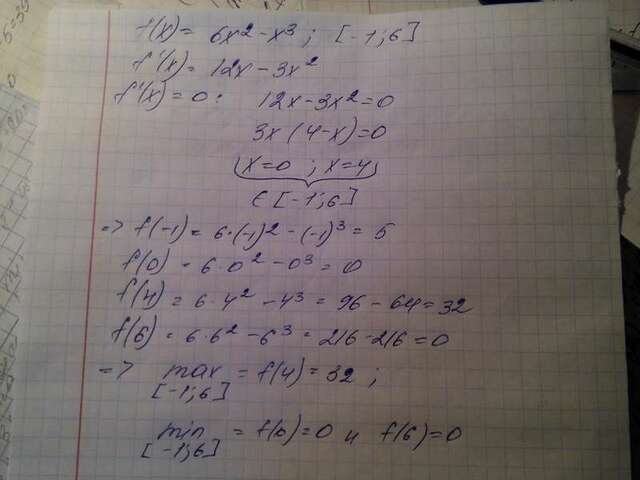 f(x) = 6x² - x³; [-1;6]
f'(x) = 12x - 3x²
f'(x) = 0: 12x - 3x² = 0
3x(4-x) = 0
x=0; x=4
∈ [-1;6]
=> f(-1) = 6·(-1)² - (-1)³ = 5
f(0) = 6·0² - 0³ = 0
f(4) = 6·4² - 4³ = 96 - 64 = 32
f(6) = 6·6² - 6³ = 216 - 216 = 0
=> max = f(4) = 32;
[-1;6]
min = f(0) = 0 и f(6) = 0
[-1;6]